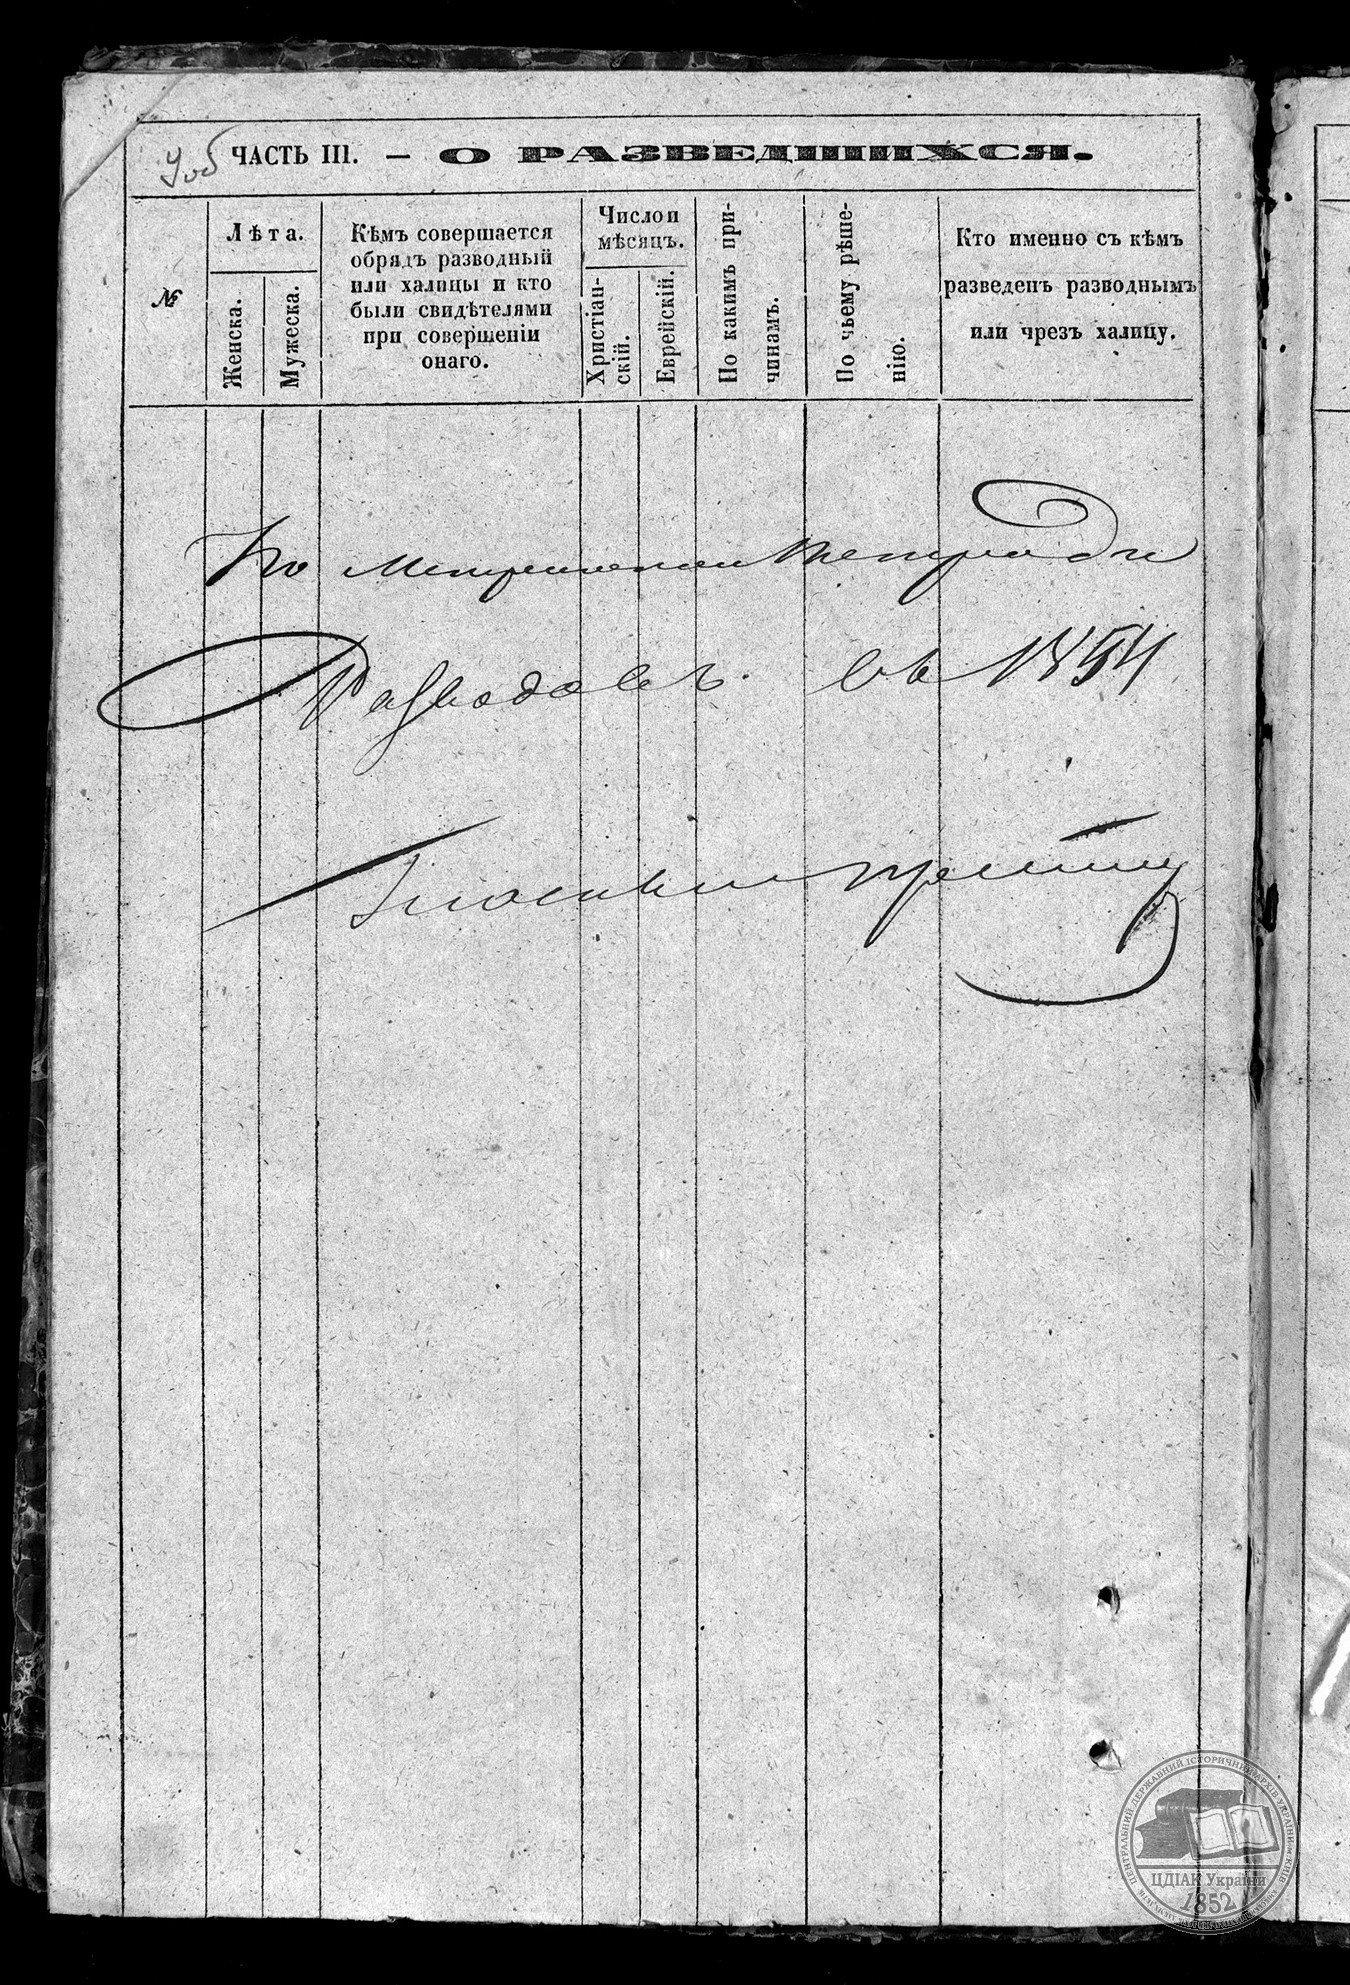 ЧАСТЬ III. — О РАЗВЕДШИХСЯ.
№
Лѣта.
Женска.
Мужеска.
Кѣмъ совершается
обрядъ разводный
или халицы и кто
были свидѣтелями
при совершеніи
онаго.
Число и
мѣсяцъ.
Христіан-
скій.
Еврейскій.
По какимъ при-
чинамъ.
По чьему рѣше-
нію.
Кто именно съ кѣмъ
разведенъ разводнымъ
или чрезъ халицу.
По Метрической тетради
Разводовъ въ 1854
ЦЕНТРАЛЬНИЙ ДЕРЖАВНИЙ ІСТОРИЧНИЙ АРХІВ УКРАЇНИ М. КИЇВ
ЦДІАК України
1852